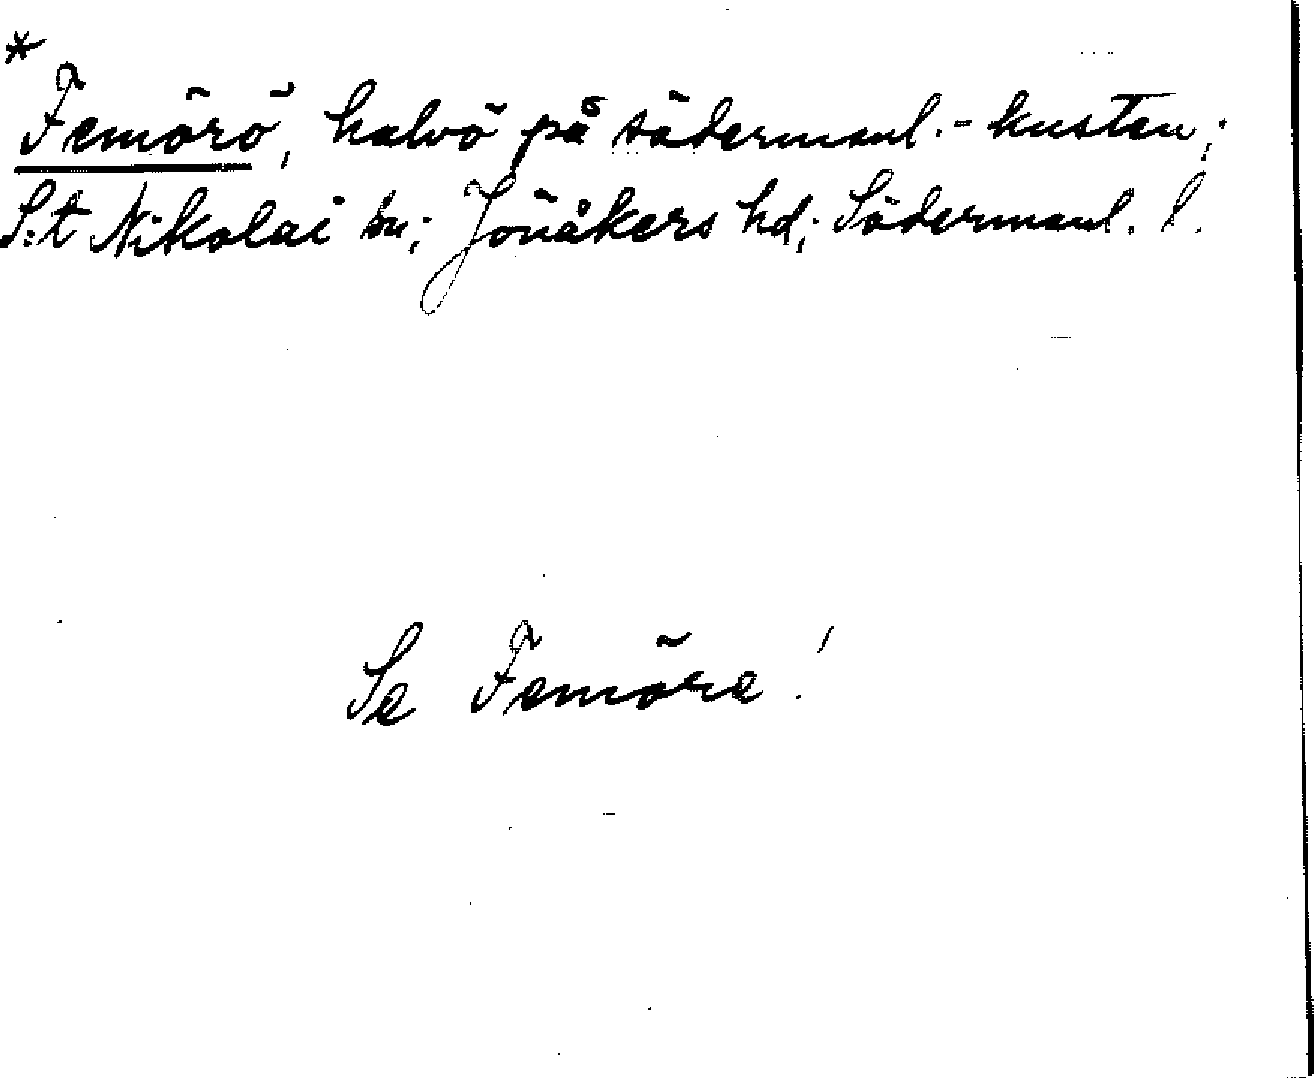 *
Femörö, halvö på södermanl.-kusten;
S:t Nikolai sn; Jönåkers hd; Södermanl. l.
Se Femöre!